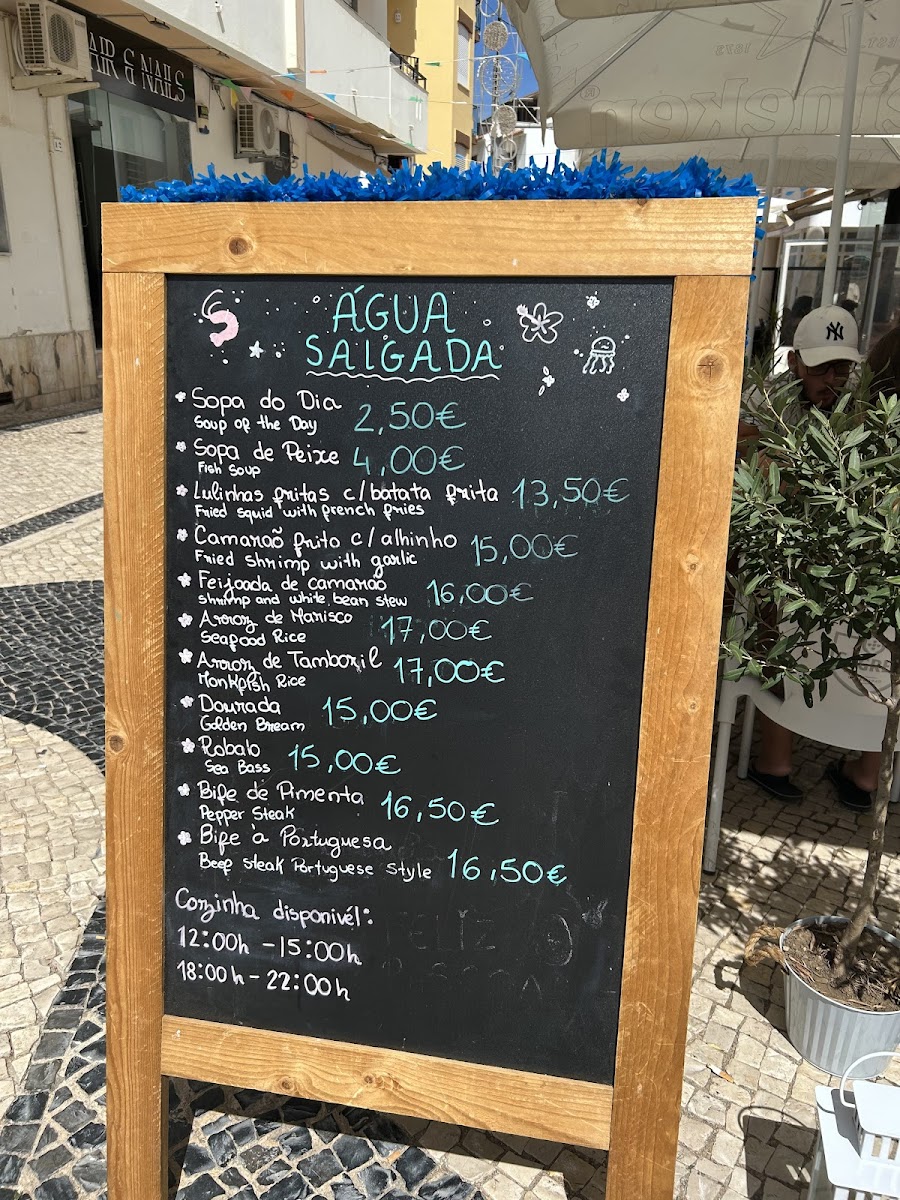 AIR & NAILS
ÁGUA
SALGADA
Sopa do Dia 2,50€
Soup of the Day
Sopa de Peixe 4,00€
Fish Soup
Lulinhas fritas c/batata frita 13,50€
Fried squid with french fries
Camaraõ frito c/alhinho 15,00€
Fried shrimp with garlic
Feijoada de camaraõ 16,00€
shrimp and white bean stew
Arroz de Marisco 17,00€
Seafood Rice
Arroz de Tamboril 17,00€
Monkfish Rice
Dourada 15,00€
Golden Bream
Robalo 15,00€
Sea Bass
Bife de Pimenta 16,50€
Pepper Steak
Bife à Portuguesa
Beef steak Portuguese style 16,50€
Cozinha disponivél:
12:00h - 15:00h
18:00h - 22:00h
FELIZ
NY